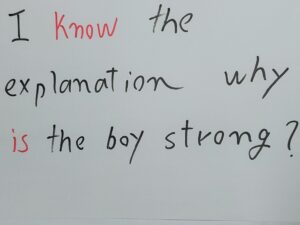 I know the
explanation why
is the boy strong?